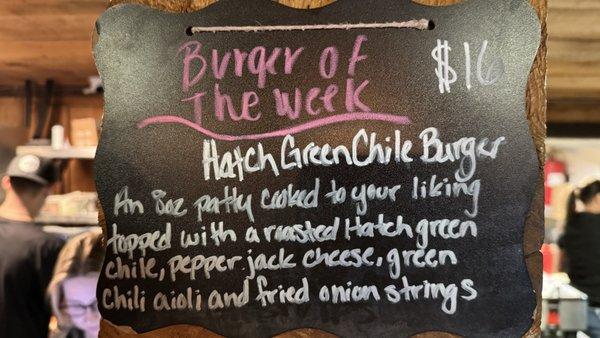 Burger of
The Week
$16
Hatch Green Chile Burger
An 8oz patty cooked to your liking
topped with a roasted Hatch green
chile, pepper jack cheese, green
Chili aioli and fried onion strings